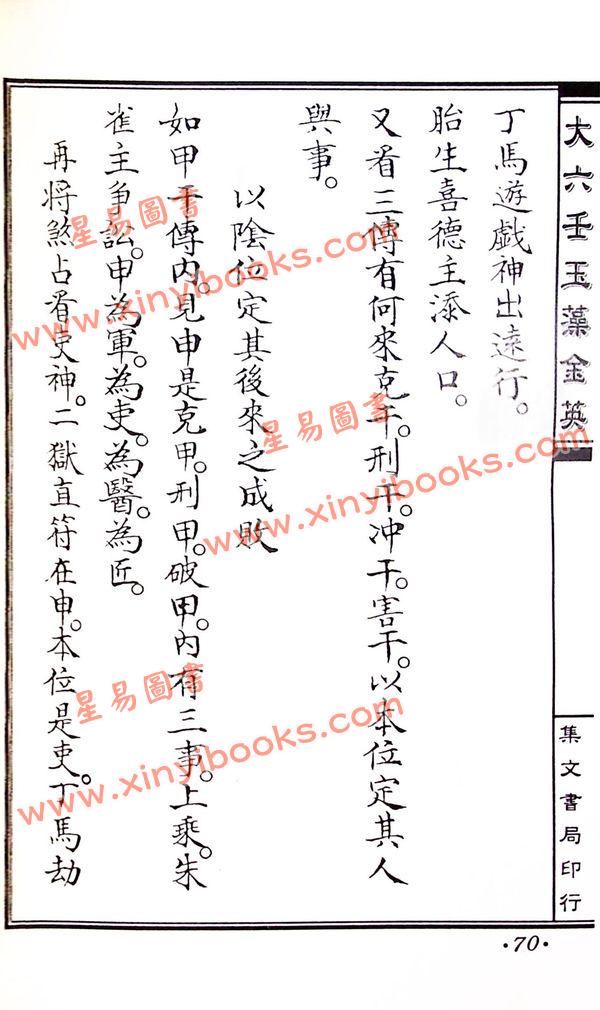 大六壬玉藻金英
丁馬遊戲神出遠行。
胎生喜德主添人口。
又看三傳有何來克干。刑干。冲干。害干。以本位定其人
與事。
以陰位定其後來之成敗
如甲干傳內。見申是克甲。刑甲。破甲。內有三事。上乘。朱
雀主争訟。申為軍。為吏。為醫。為匠。
再将煞占看吏神。二獄直符在申。本位是吏。丁馬劫
集文書局印行
·70·
星易圖書
www.xinyibooks.com
星易圖書
www.xinyibooks.com
星易圖書
www.xinyibooks.com